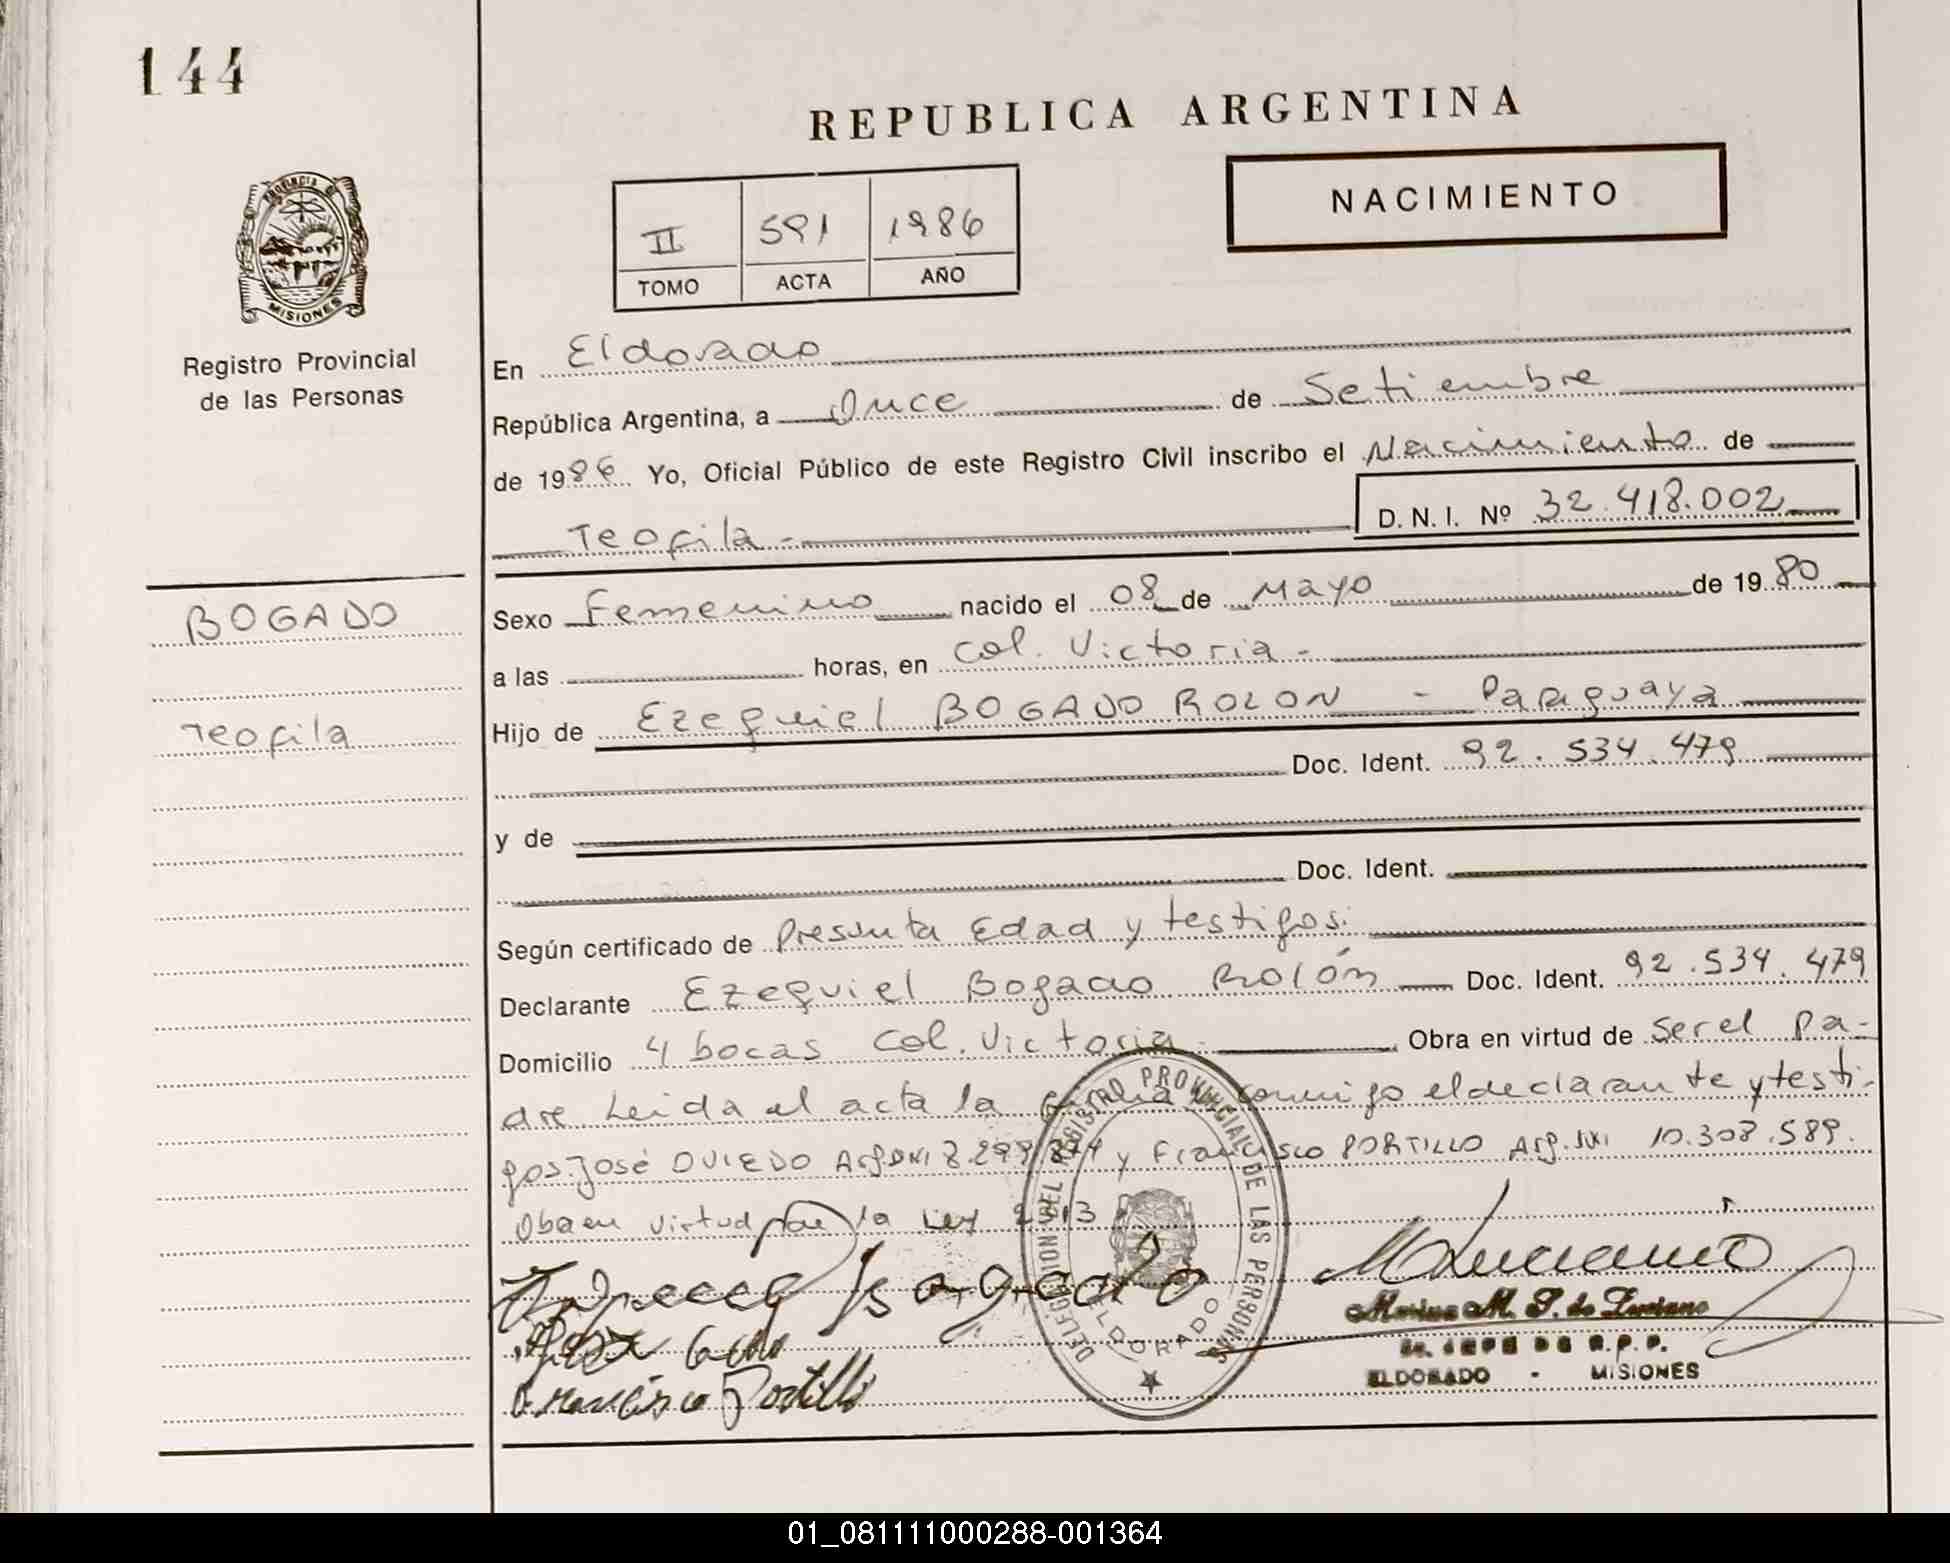 144
REPUBLICA ARGENTINA
NACIMIENTO
II 591 1986
TOMO ACTA AÑO
PROVINCIA DE
MISIONES
Registro Provincial
de las Personas
En Eldorado
República Argentina, a Once de Setiembre
de 1986 Yo, Oficial Público de este Registro Civil inscribo el Nacimiento de
Teofila - D. N. I. Nº 32.418.002
BOGADO
Teofila
Sexo Femenino nacido el 08 de Mayo de 1980
a las horas, en Col. Victoria -
Hijo de Ezequiel BOGADO ROLON - Paraguaya
Doc. Ident. 92.534.479
y de
Doc. Ident.
Según certificado de Presunta Edad y testigos.
Declarante Ezequiel Bogado Rolón Doc. Ident. 92.534.479
Domicilio 4 bocas Col. Victoria Obra en virtud de ser el Pa-
dre Leida el acta la firma conmigo el declarante y testi-
gos. José OVIEDO Arg. DNI y Francisco PORTILLO Arg. DNI 10.308.589.
Oba en virtud de la Ley
Bogado
Francisco Portillo
DELEGACION DEL REGISTRO PROVINCIAL DE LAS PERSONAS
ELDORADO
M Luciano
Marina M. S. de Luciano
JEFE DE R.P.P.
ELDORADO - MISIONES
01_081111000288-001364